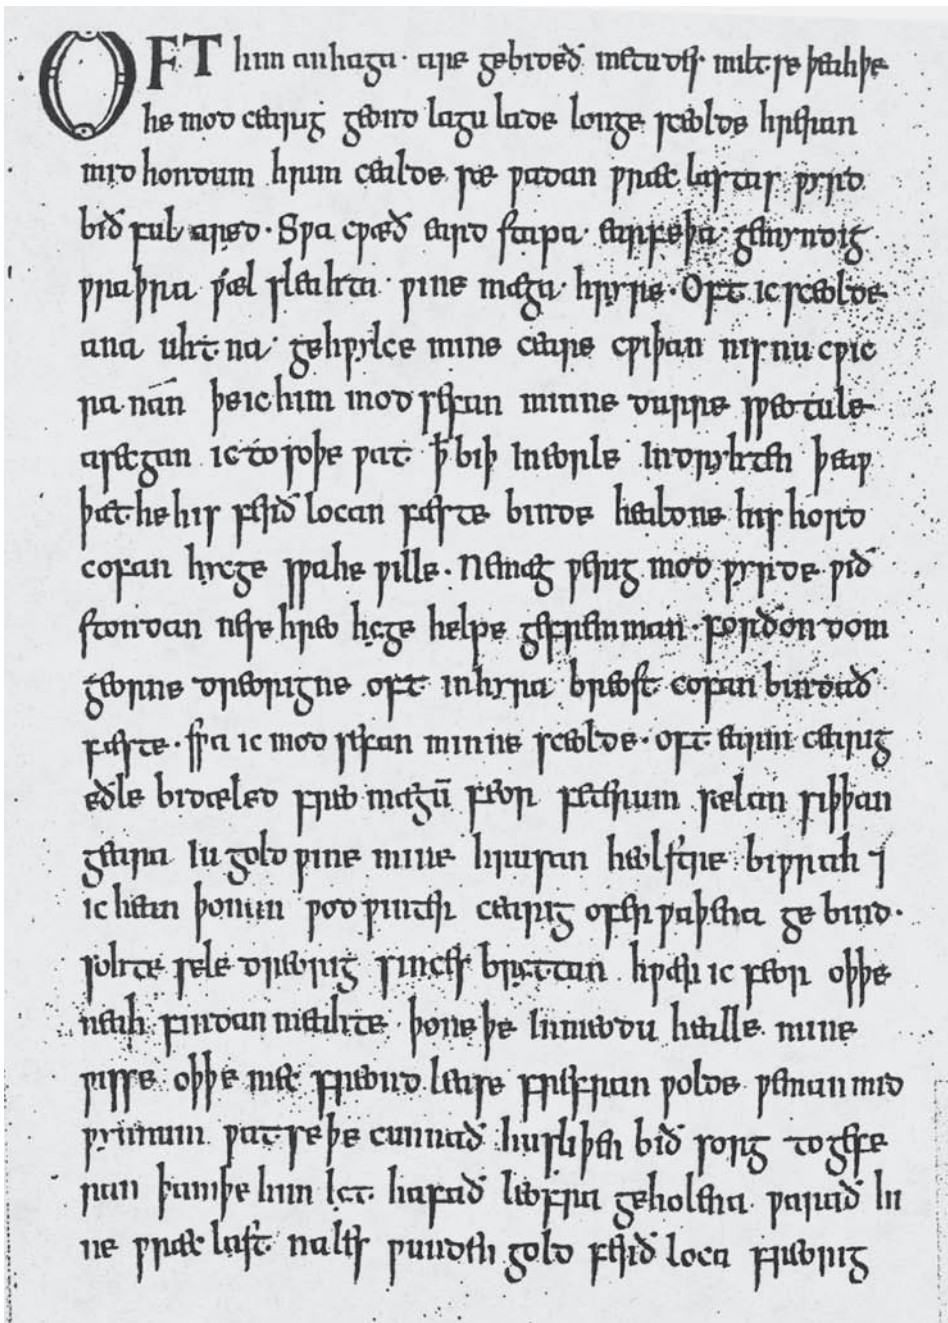 OFT him anhaga· are gebideð metudes· miltse þeahþe
he mod cearig geond lagu lade longe sceolde hreran
mid hondum hrim cealde sæ ƿadan ƿræc lastas ƿyrd
bið ful aræd· Sƿa cƿæð eard stapa· earfeþa· gemyndig
ƿraþra ƿæl sleahta· ƿine mæga· hryre· Oft ic sceolde
ana uhtna· gehƿylce mine ceare cƿiþan nis nu cƿic
ra nan̄ þe ic him modsefan minne durre sƿeotule
asecgan ic to soþe ƿat ꝥ biþ in eorle indryhten þeaƿ
þæt he his ferð locan fæste binde healdne his hord
cofan hycge sƿa he ƿille· Ne mæg ƿerig mod ƿyrde ƿið
stondan ne se hreo hyge helpe gefremman· forðon dom
georne dreorigne oft in hyra breost cofan bindað
fæste· sƿa ic mod sefan minne sceolde· oft earm cearig
eðle bidæled freo mægū feor feterum sælan siþþan
geara iu gold ƿine mine hrusan heolstre biƿrah ⁊
ic hean þonan ƿod ƿinter cearig ofer ƿaþena ge bind·
sohte sele dreorig sinces bryttan hƿær ic feor oþþe
neah findan meahte þone þe in meodu healle mine
ƿisse oþþe mec freond lease frefran ƿolde ƿeman mid
ƿynnum ƿat se þe cunnað hu sliþen bið sorg to gefe
ran þam þe him lyt hafað leofra geholena ƿarað hi
ne ƿræc last· nales ƿunden gold ferð loca freorig